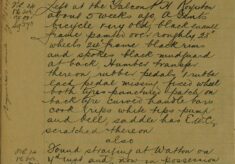 Left at the Falcon H Royston
about 5 weeks ago, A Gents
bicycle very old, black enamel
frame painted over, roughly 28"
wheels 24" frame black rim
and spokes black mudguard
at back Humber transfer
thereon rubber pedals 1 rubber
each pedal missing fixed wheel
both tyres puncture patch on
back tyre Curved handle bars
cork Grips white tips pand
and bell, saddle has E.W.C.
scratched thereon
also
Found straying at Watton on
4th inst and now in possession